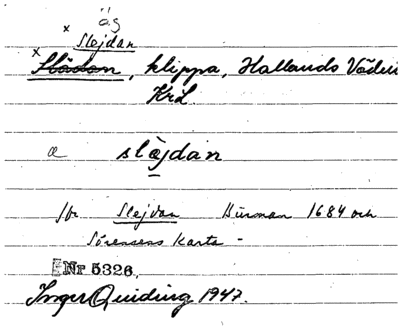 äs
× Slejdan
× Slädan, klippa, Hallands Väderö
Krl.
a slä̀jdan
jbr Slejdan Burman 1684 och
Sörensens karta -
Nr 5326.
Inger Quiding 1947.